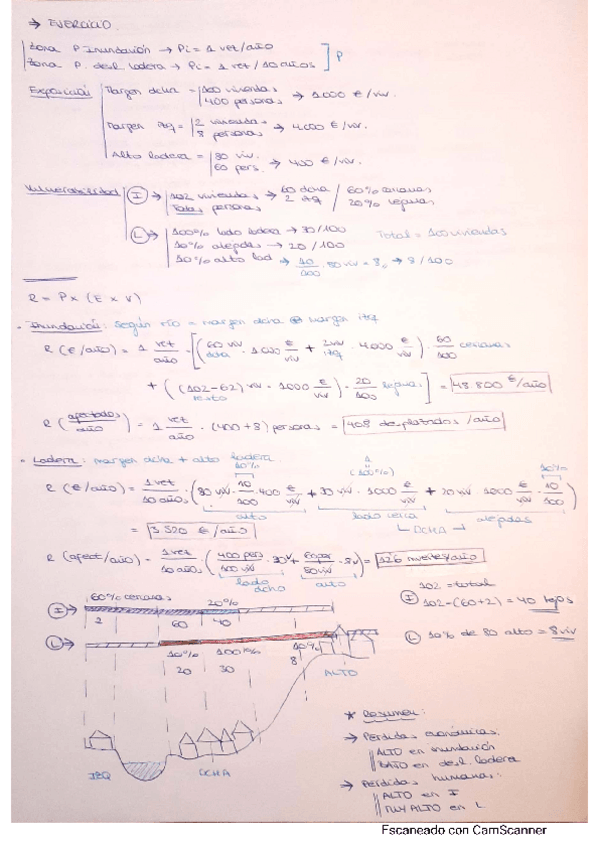 → EJERCICIO.
Zona P. Inundación → Pi = 1 vez/año
Zona P. desl. ladera → Pi = 1 vez/10 años ] P
Exposición | Margen dcha = | 100 viviendas
400 personas → 1000 €/viv.
Margen izq = | 2 viviendas
8 personas → 4000 €/viv.
Alto ladera = | 80 viv.
60 pers. → 400 €/viv.
Vulnerabilidad | I → 102 viviendas → 60 dcha / 60% cercanas
Todas personas 2 izq / 20% lejanas
L → 100% lado ladera → 30/100 Total = 100 viviendas
10% alejadas → 20/100
10% alto lad → 10/100 · 80 viv = 8 → 8/100
R = P x (E x V)
• Inundación: según río = margen dcha margen izq
R (€/año) = 1 vez/año · [(60 viv dcha · 1000 €/viv + 2 viv izq · 4000 €/viv) · 60/100 cercanas
+ ((102-62) viv resto · 1000 €/viv) · 20/100 lejanas] = 48 800 €/año
R (afectados/año) = 1 vez/año · (400 + 8) personas = 408 desplazados/año
• Ladera: margen dcha + alto ladera.
10% 1 (100%) 10%
R (€/año) = 1 vez/10 años · (80 viv · 10/100 · 400 €/viv + 30 viv · 1000 €/viv + 20 viv · 1000 €/viv · 10/100)
alto lado cerca alejadas
DCHA
= 3.520 €/año
R (afect/año) = 1 vez/10 años · (400 pers/100 viv · 30v + 60 per/80 viv · 8v) = 126 muertes/año
lado dcho alto
60% cercanas 20%
I 2 60 40
102 = total
I 102-(60+2) = 40 lejos
L 10% 100% 10%
20 30 8
L 10% de 80 alto = 8 viv
ALTO
IZQ DCHA
* Resumen:
→ Perdidas económicas:
ALTO en inundación
BAJO en desl. ladera
→ Perdidas humanas:
ALTO en I
MUY ALTO en L
Escaneado con CamScanner